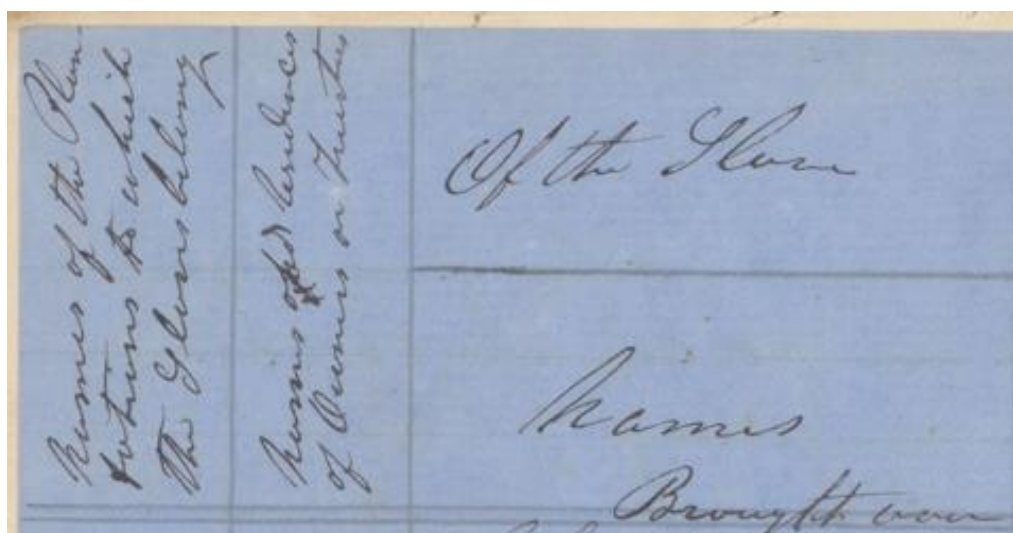 Names of the Plan-
tations to which
the Slaves belong
Names and Residences
of Owners or Trustees
Of the Slave
Names
Brought over